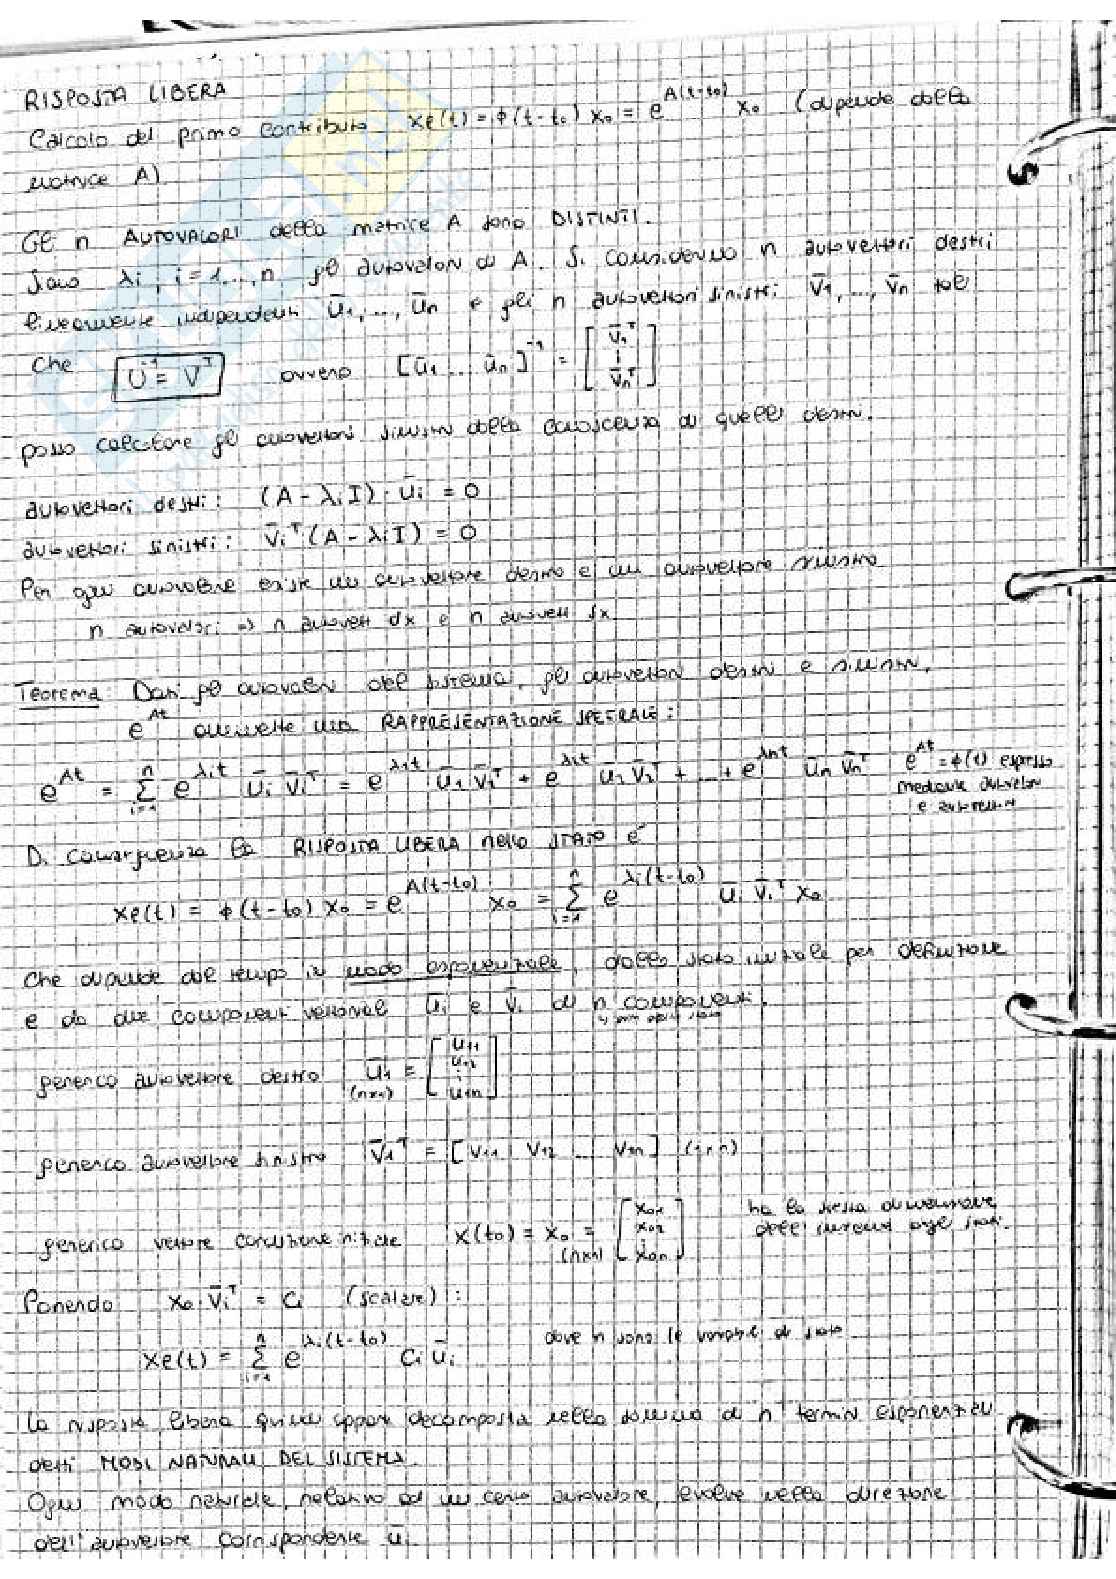 RISPOSTA LIBERA
Calcolo del primo contributo xe(t) = ϕ(t-t₀) x₀ = e^A(t-t₀) x₀ (dipende dalla
matrice A)
GLI n AUTOVALORI della matrice A sono DISTINTI.
Siano λi, i=1,...,n, gli autovalori di A. Si considerino n autovettori destri
linearmente indipendenti ū₁,..., ūn e gli n autovettori sinistri v̄₁,..., v̄n tali
che U⁻¹ = Vᵀ ovvero [ū₁ ... ūn]⁻¹ = [v̄₁ᵀ ⋮ v̄nᵀ]
posso calcolare gli autovettori sinistri dalla conoscenza di quelli destri.
autovettori destri: (A - λiI)·ūi = 0
autovettori sinistri: v̄iᵀ(A - λiI) = 0
Per ogni autovalore esiste un autovettore destro e un autovettore sinistro
n autovalori => n autovett dx e n autovett sx
Teorema: Dati gli autovalori del sistema, gli autovettori destri e sinistri,
e^At ammette una RAPPRESENTAZIONE SPETTRALE:
e^At = Σ_{i=1}^n e^λit ūi v̄iᵀ = e^λ1t ū₁ v̄₁ᵀ + e^λ2t ū₂ v̄₂ᵀ + ... + e^λnt ūn v̄nᵀ e^At = ϕ(t) espresso
mediante autovalori
e autovettori
Di conseguenza la RISPOSTA LIBERA nello STATO è
xe(t) = ϕ(t-t₀) x₀ = e^A(t-t₀) x₀ = Σ_{i=1}^n e^λi(t-t₀) ūi v̄iᵀ x₀
che dipende dal tempo in modo esponenziale, dallo stato iniziale per definizione
e da due componenti vettoriali ūi e v̄i di n componenti.
generico autovettore destro ū₁ = [u₁₁ u₁₂ ⋮ u₁n]
(nx1)
generico autovettore sinistro v̄₁ᵀ = [v₁₁ v₁₂ ... v₁n] (1xn)
generico vettore condizione iniziale x(t₀) = x₀ = [x₀₁ x₀₂ ⋮ x₀n] ha la stessa dimensione
(nx1)
Ponendo x₀·v̄iᵀ = Ci (scalare):
xe(t) = Σ_{i=1}^n e^λi(t-t₀) Ci ūi dove n sono le variabili di stato
La risposta libera quindi appare decomposta nella somma di n termini esponenziali
detti MODI NATURALI DEL SISTEMA.
Ogni modo naturale, relativo ad un certo autovalore, evolve nella direzione
dell'autovettore corrispondente ūi